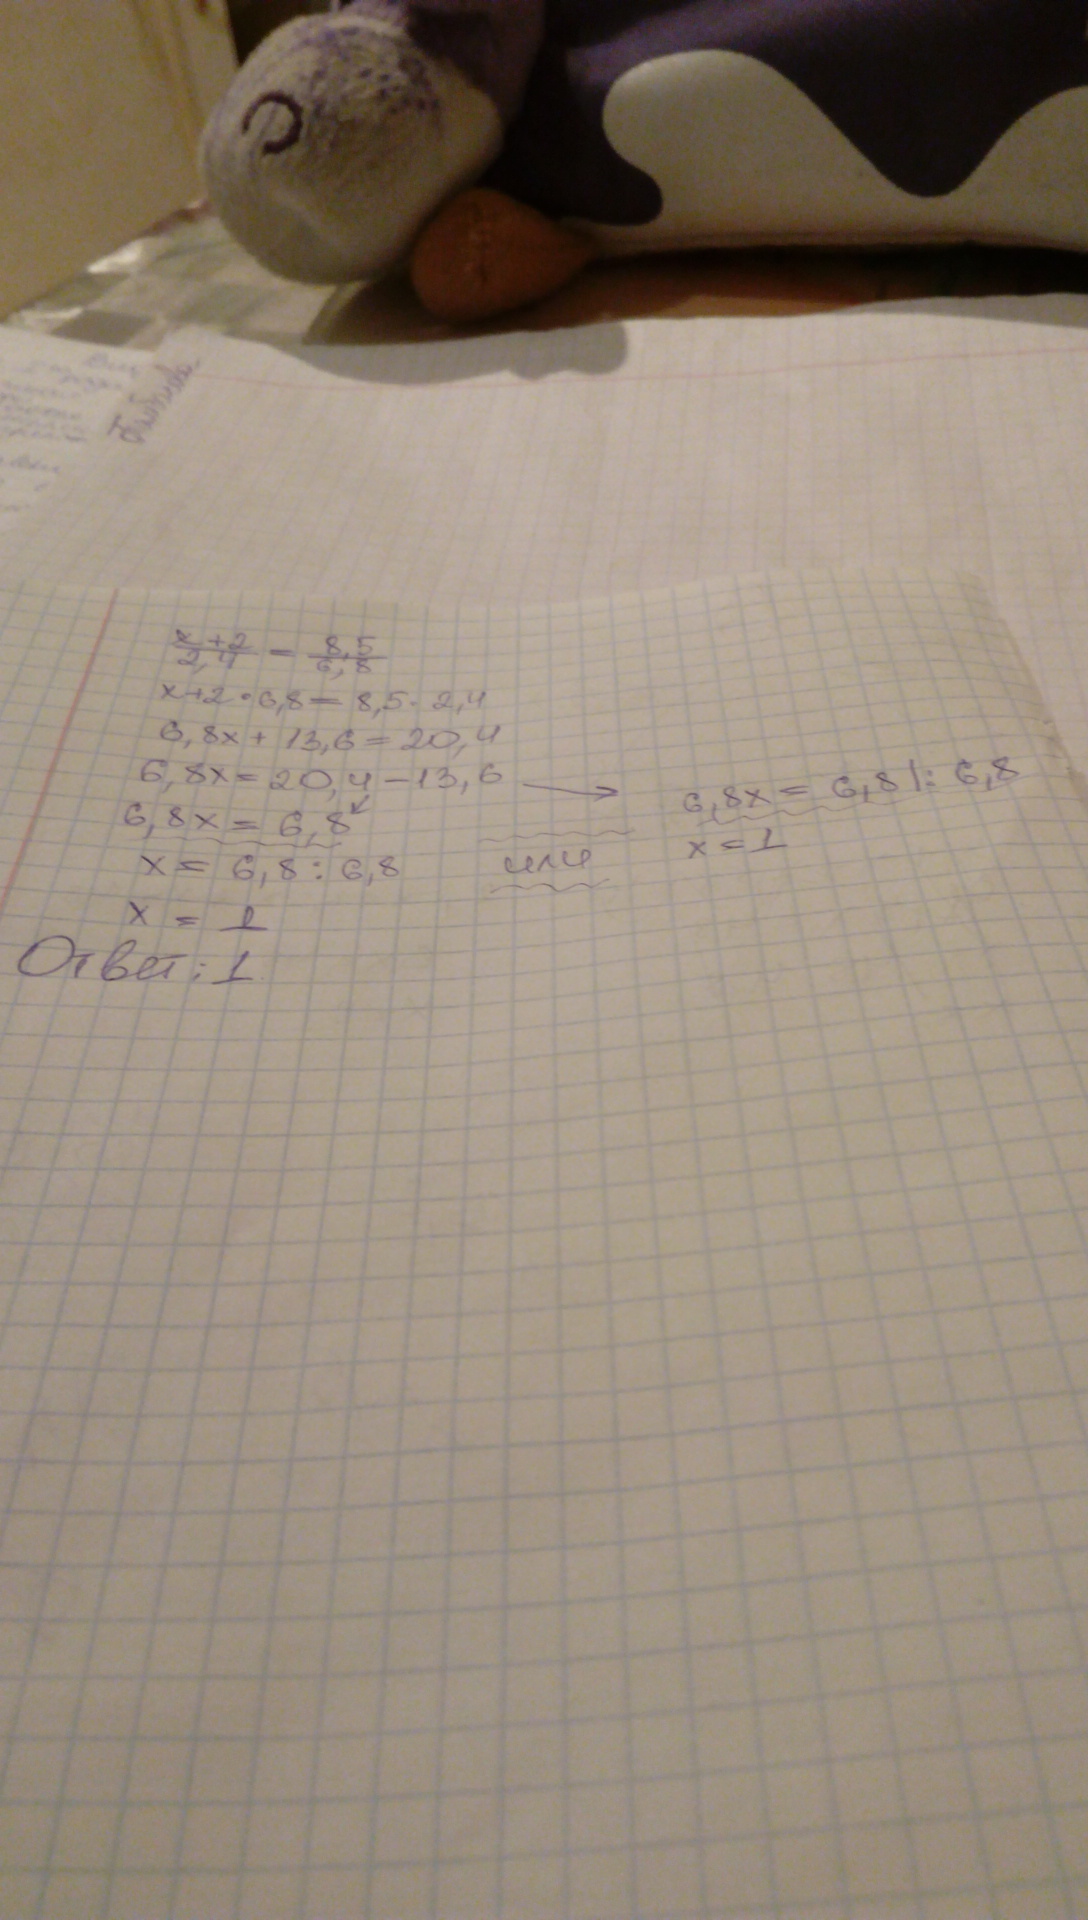 x+2/2,4 = 8,5/6,8
x+2·6,8=8,5·2,4
6,8x+13,6=20,4
6,8x=20,4-13,6
6,8x=6,8
x=6,8:6,8
x=1
Ответ:1
или
6,8x=6,8|:6,8
x=1